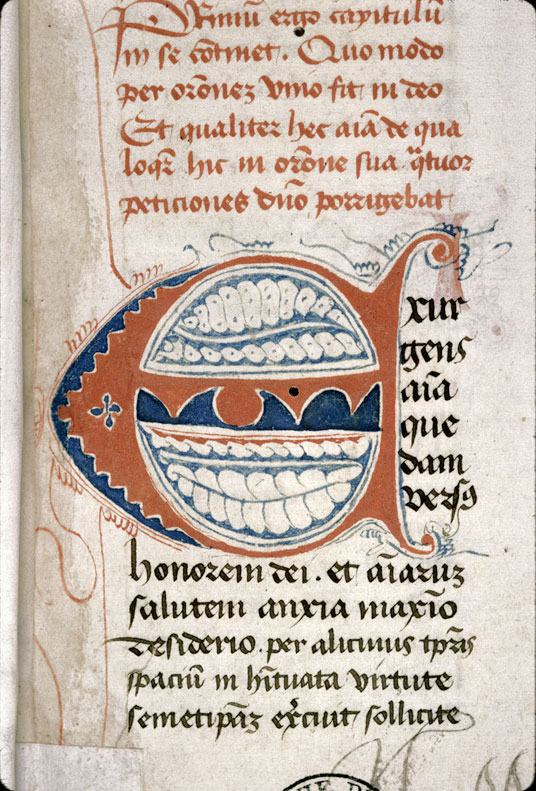 Primũ ergo capitulũ
in se cõtinet. Quo modo
per orõnez vnio fit in deo
Et qualiter hec aiã de qua
loqr̃ hic in orõne sua q̃tuor
peticiones dño porrigebat
Exur
gens
aĩa
que
dam
versꝰ
honorem dei. et aĩaruz
salutem anxia maxĩo
desiderio. per alicuius tp̃ris
spaciũ in hĩtuata virtute
semetip̃az exc̃uit sollicite